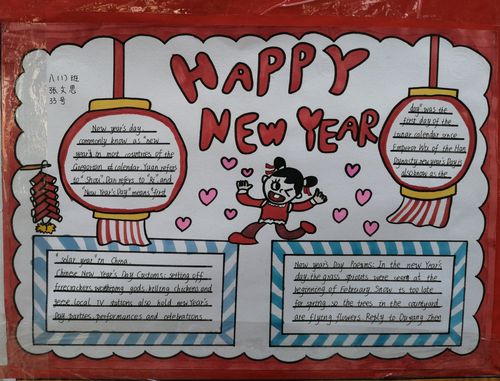 八(1)班
张文思
33号
HAPPY
NEW YEAR
New year's day,
commonly know as "new
year" in most countries of the
Gregorian calendar. Yuan refers
to "Shou". Dan refers to "Ri" and
"New Year's Day" means "first
day" was the
first day of the
lunar calendar since
Emperor Wu of the Han
Dynasty. new year's Day is
also know as the
"solar year" in China
Chinese New Year's Day Customs: setting off
firecrackers gods, killing chickens and
geese local TV stations also hold new Year's
Day parties, performances and celebrations.
New year's Day Poems: In the new Year's
day, the grass sprouts were seen at the
beginning of February. Snow is too late
for spring, so the trees in the courtyard
are flying flowers. Reply to Ouyang Zhen